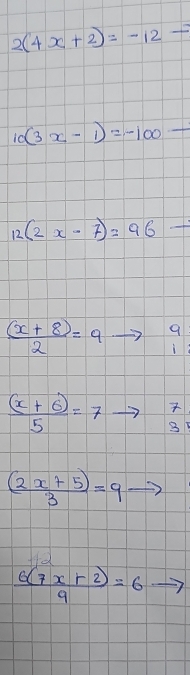 2(4x+2) = -12 —
10(3x - 1) = -100 —
12(2x - 7) = 96 —
(x + 8)/2 = 9 → 9
1
(x + 6)/5 = 7 → 7
3
(2x + 5)/3 = 9 →
6(7x + 2)/9 = 6 →